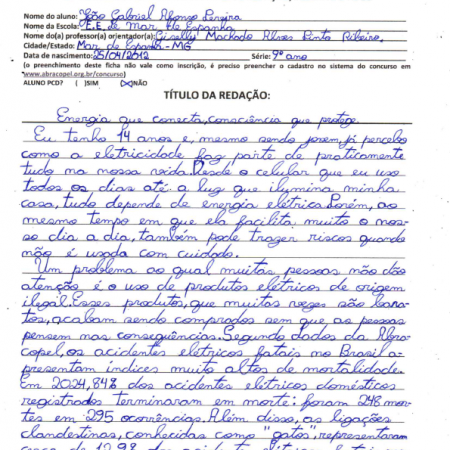 Nome do aluno: João Gabriel Afonso Pereira
Nome da Escola: E.E. de Mar de Espanha
Nome do(a) professor(a) orientador(a): Giselly Machado Alves Pinto Ribeiro.
Cidade/Estado: Mar de Espanha - MG
Data de nascimento: 25/04/2012 Série: 9º ano
(o preenchimento desta ficha não vale como inscrição, é preciso preencher o cadastro no sistema do concurso em
www.abracopel.org.br/concurso)
ALUNO PCD? ( )SIM (X)NÃO
TÍTULO DA REDAÇÃO:
Energia que conecta, consciência que protege.
Eu tenho 14 anos e, mesmo sendo jovem, já percebo
como a eletricidade faz parte de praticamente
tudo na nossa vida. Desde o celular que eu uso
todos os dias até a luz que ilumina minha
casa, tudo depende de energia elétrica. Porém, ao
mesmo tempo em que ela facilita muito o nos-
so dia a dia, também pode trazer riscos quando
não é usada com cuidado.
Um problema ao qual muitas pessoas não dão
atenção é o uso de produtos elétricos de origem
ilegal. Esses produtos, que muitas vezes são bara-
tos, acabam sendo comprados sem que as pessoas
pensem nas consequências. Segundo dados da Abra-
copel, os acidentes elétricos fatais no Brasil a-
presentam índices muito altos de mortalidade.
Em 2024, 84% dos acidentes elétricos domésticos
registrados terminaram em morte: foram 248 mor-
tes em 295 ocorrências. Além disso, as ligações
clandestinas, conhecidas como "gatos", representaram